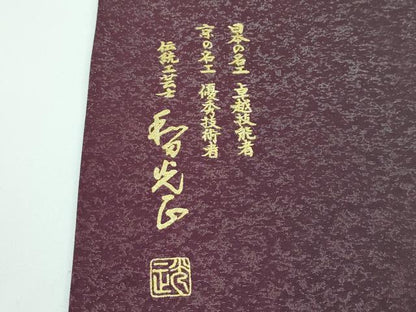 日本の名工 卓越技能者
京の名工 優秀技術者
伝統工芸士
和田光正